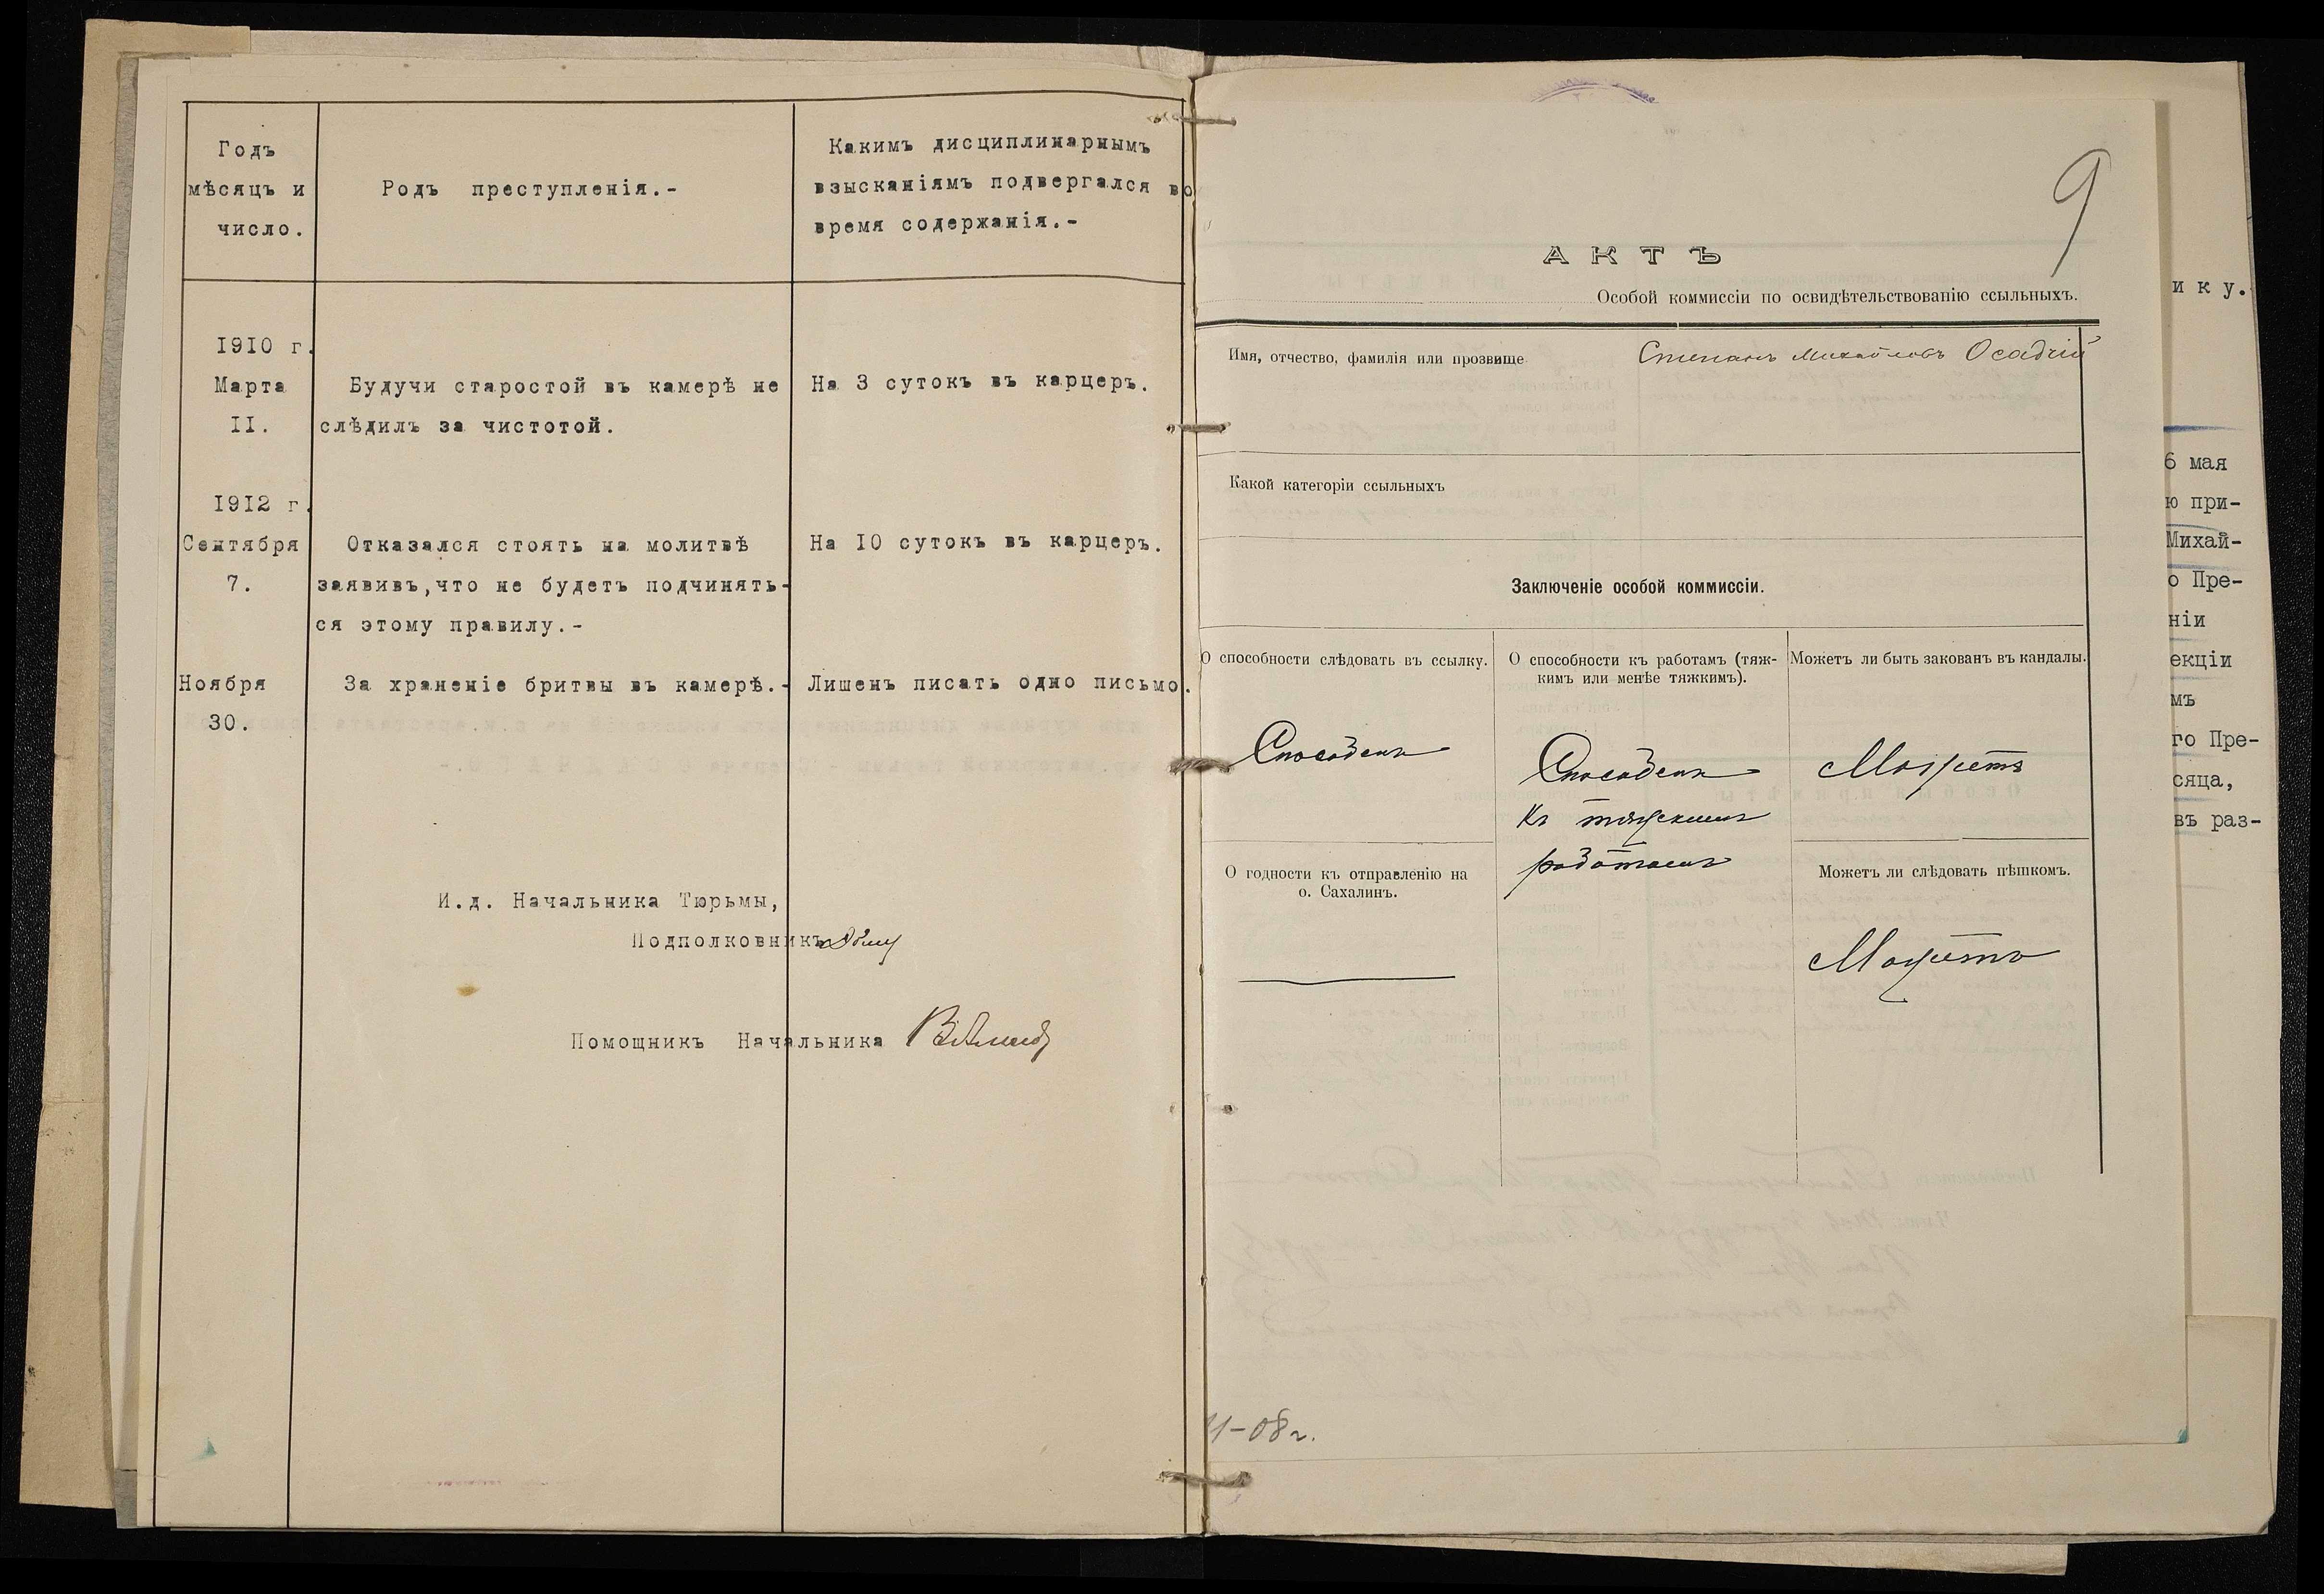 Годъ
мѣсяцъ и
число.
Родъ преступленія.-
Какимъ дисциплинарнымъ
взысканіямъ подвергался во
время содержанія.-
I9I0 г.
Марта
II.
Будучи старостой въ камерѣ не
слѣдилъ за чистотой.
На 3 сутокъ въ карцеръ.
I9I2 г.
Сентября
7.
Отказался стоять на молитвѣ
заявивъ,что не будетъ подчинять-
ся этому правилу.-
На I0 сутокъ въ карцеръ.
Ноября
30.
За храненіе бритвы въ камерѣ.-
Лишенъ писать одно письмо.
И.д. Начальника Тюрьмы,
Подполковникъ
Помощникъ Начальника
9
АКТЪ
Особой коммиссіи по освидѣтельствованію ссыльныхъ.
Имя, отчество, фамилія или прозвище
Степанъ Михайловъ Осадчій
Какой категоріи ссыльныхъ
Заключеніе особой коммиссіи.
О способности слѣдовать въ ссылку.
Способенъ
О годности къ отправленію на
о. Сахалинъ.
О способности къ работамъ (тяж-
кимъ или менѣе тяжкимъ).
Способенъ
къ тяжскимъ
работамъ
Можетъ ли быть закованъ въ кандалы.
Можетъ
Можетъ ли слѣдовать пѣшкомъ.
Можетъ
-08г.
ику.
6 мая
ю при-
Михай-
о Пре-
ніи
екціи
мъ
го Пре-
сяца,
въ раз-